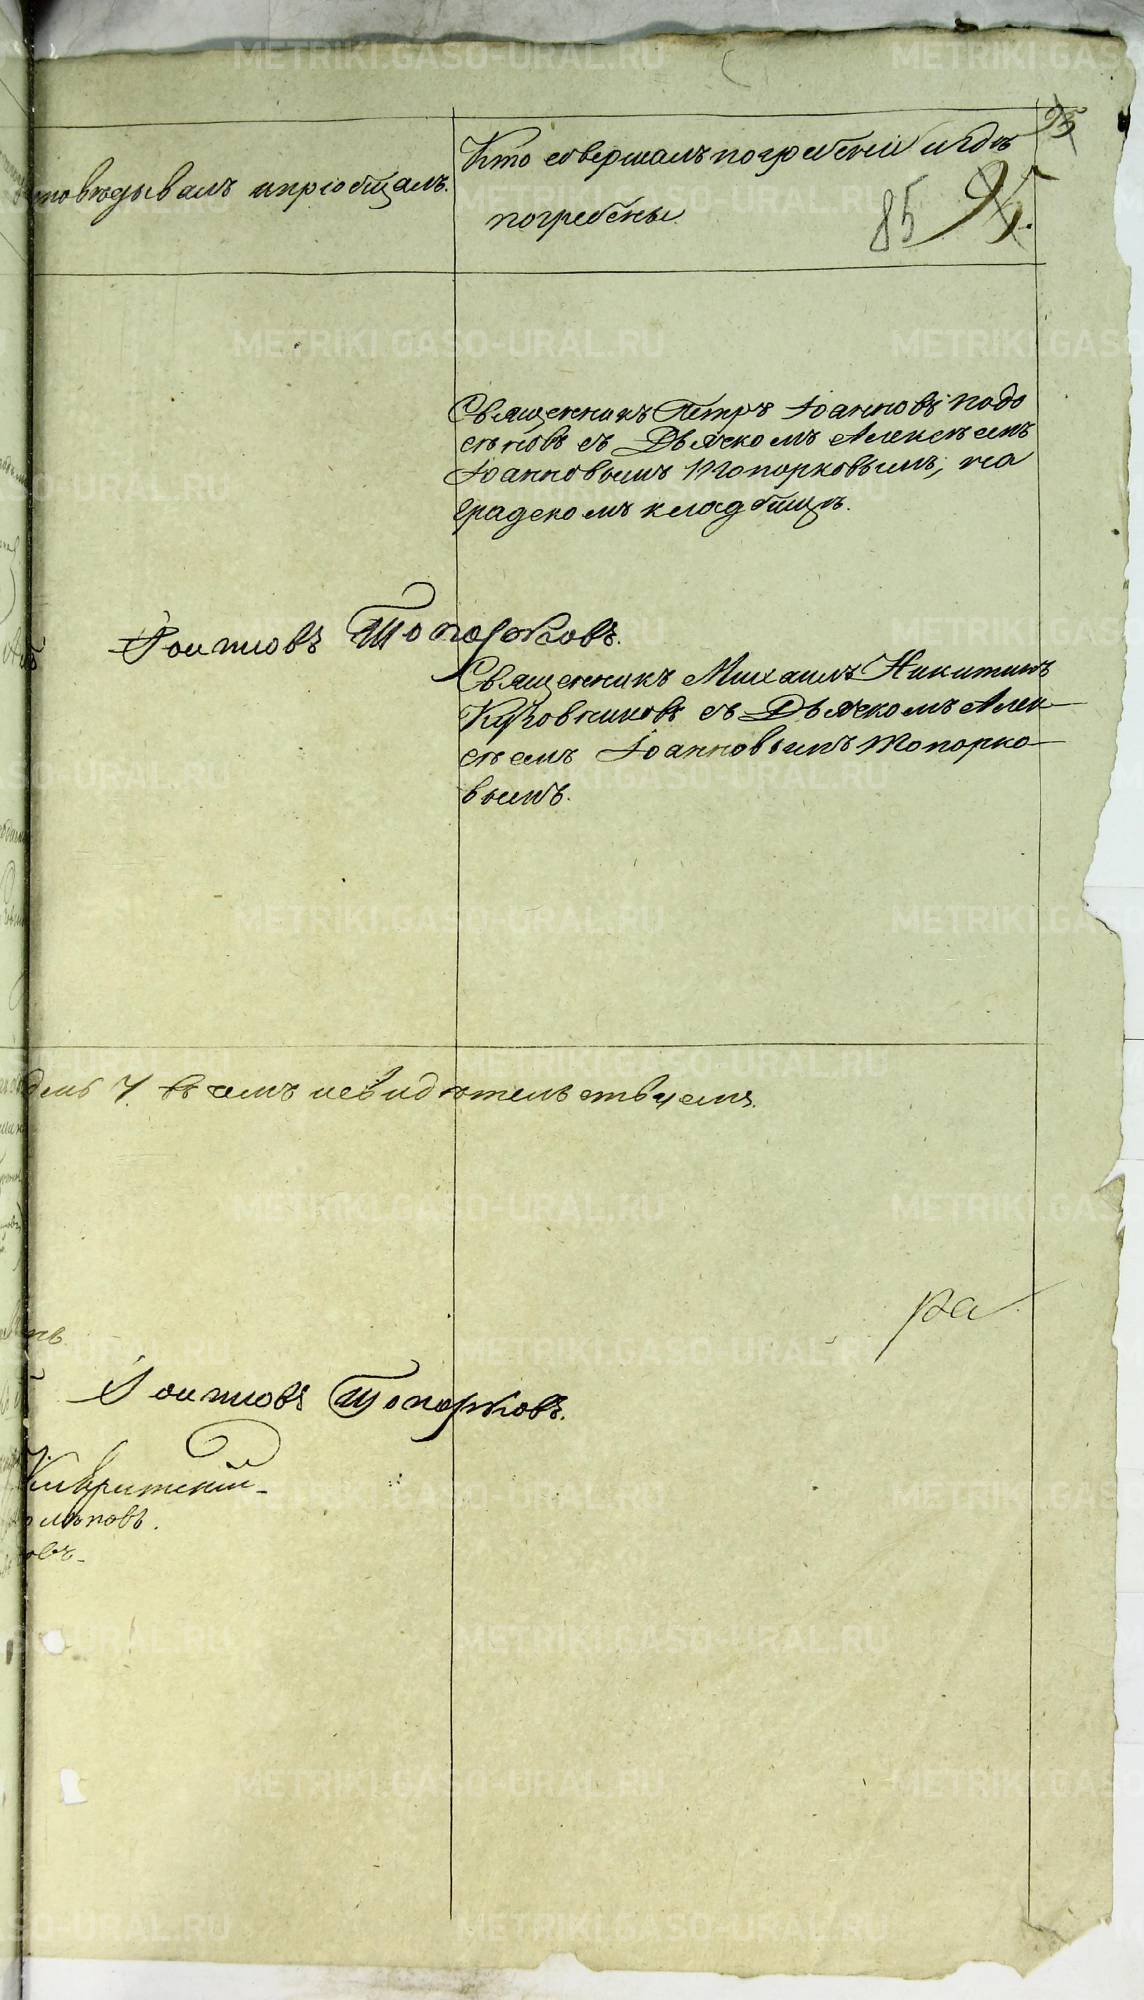 95
исповѣдывалъ и пріобщалъ.
Кто совершалъ погребеніе и гдѣ
погребены
85 95.
Священникъ Петръ Іоанновъ Подо
сѣновъ съ Дьячкомъ Алексѣемъ
Іоанновымъ Топорковымъ, на
градскомъ кладбищѣ.
Іоанновъ Топорковъ.
Священникъ Михаилъ Никитинъ
Кузовниковъ съ Дьячкомъ Алек
сѣемъ Іоанновымъ Топорко
вымъ.
въ чемъ и свидѣтельствуемъ.
ра
Іоанновъ Топорковъ.
METRIKI.GASO-URAL.RU